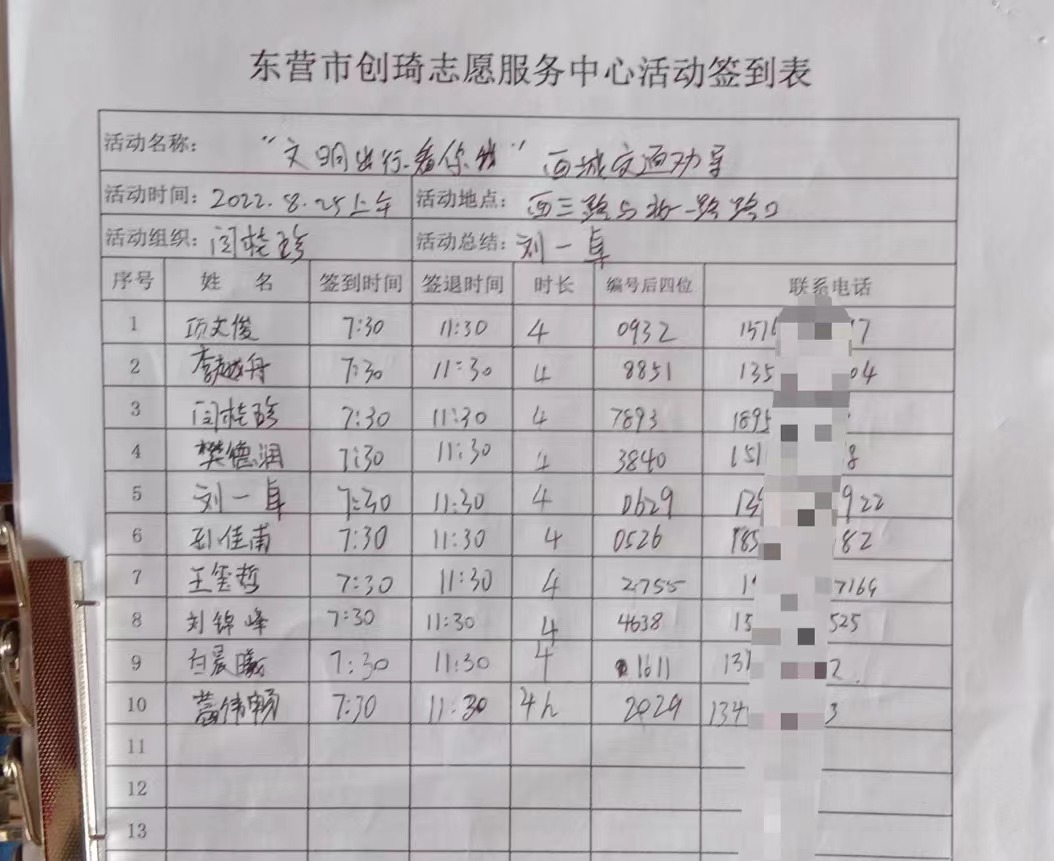 东营市创琦志愿服务中心活动签到表
活动名称： “文明出行·看你我” 西城交通劝导
活动时间：2022.8.25上午 活动地点： 西三路与北一路路口
活动组织：闫桂珍 活动总结：刘一卓
序号 姓 名 签到时间 签退时间 时长 编号后四位 联系电话
1 项文俊 7:30 11:30 4 0932 151 7
2 李越丹 7:30 11:30 4 8851 135 04
3 闫桂珍 7:30 11:30 4 7893 1895
4 樊德润 7:30 11:30 4 3840 151 8
5 刘一卓 7:30 11:30 4 0629 13 922
6 孙佳南 7:30 11:30 4 0526 185 82
7 王玺哲 7:30 11:30 4 2755 1 7169
8 刘锦峰 7:30 11:30 4 4638 15 525
9 白晨曦 7:30 11:30 4 1611 131 2.
10 伟畅 7:30 11:30 4h 2029 134 3
11
12
13